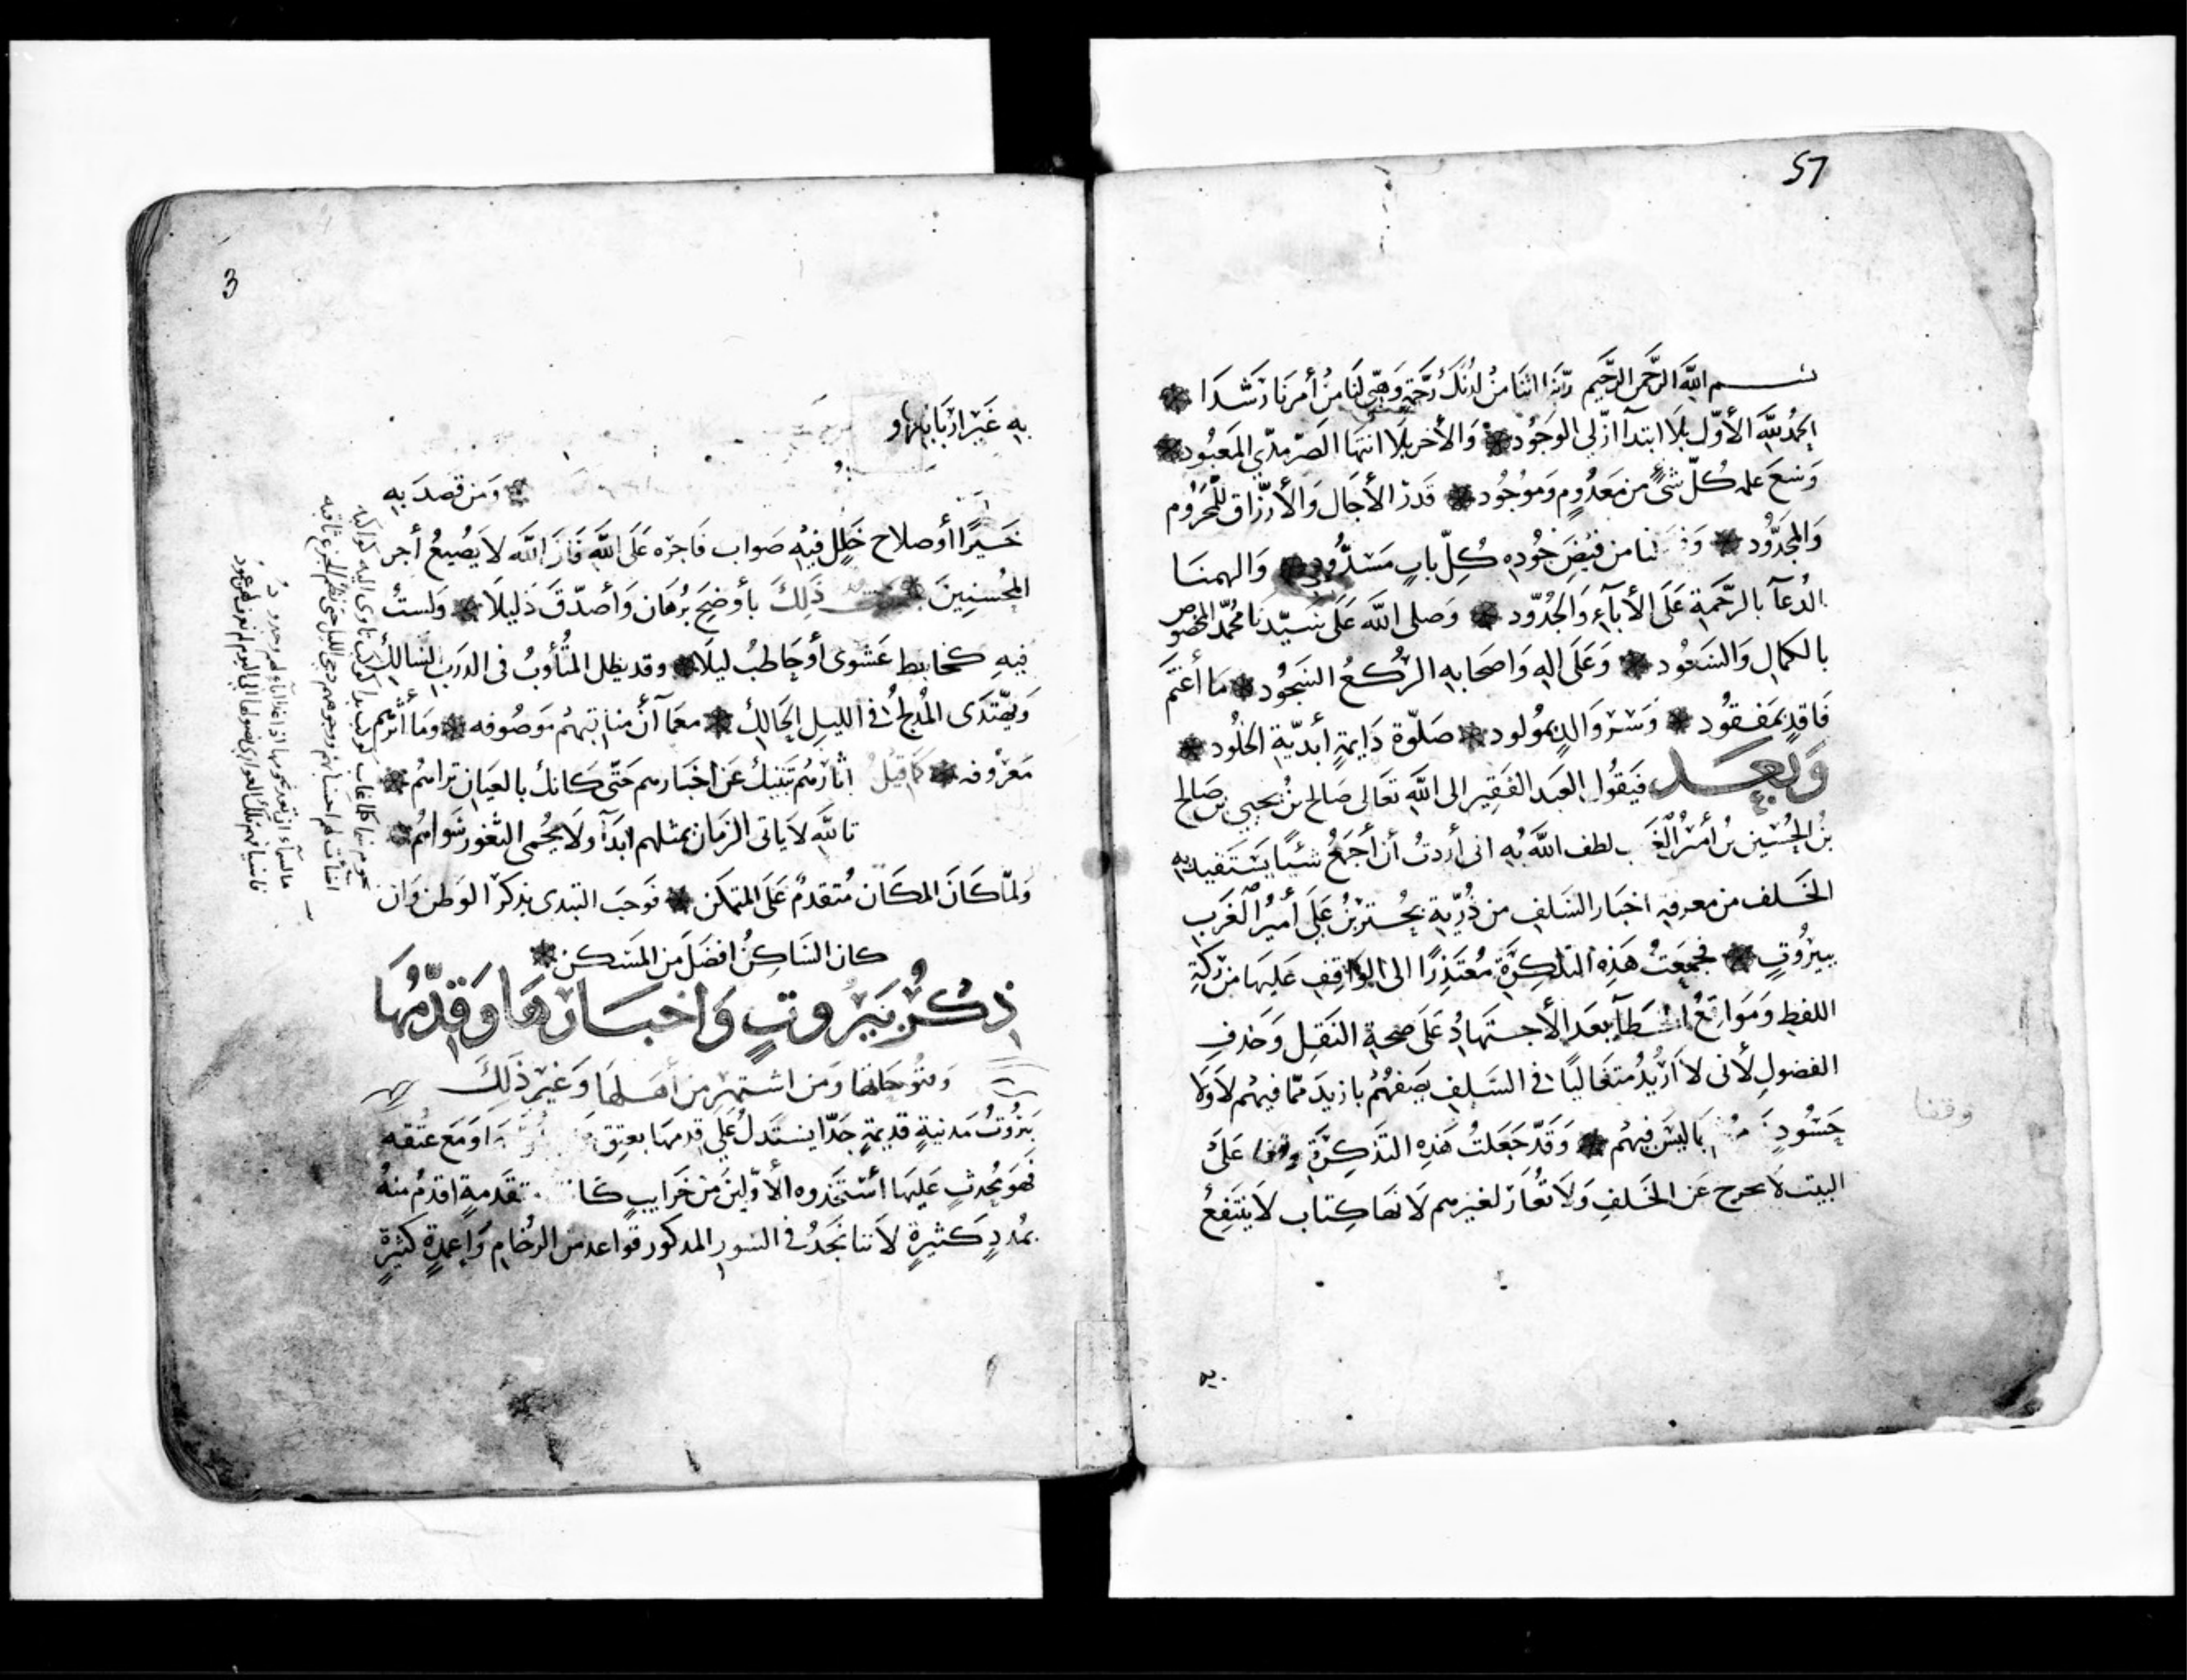 57
بسم الله الرحمن الرحيم ربنا اتنا من لدنك رحمة وهيى لنا من أمرنا رشدا
الحمد لله الأول بلا ابتدآ ازلى الوجود والأخر بلا انتها الصرمدى المعبود
وسع علمه كل شئ من معدوم وموجود قدر الأجال والأرزاق للمحروم
والمجدود من فيض جوده كل باب مسدود والهمنا
الدعآ بالرحمة على الأبآء والجدود وصلى الله على سيدنا محمد المخصوص
بالكمال والسعود وعلى اله واصحابه الركع السجود ما أغتم
فاقد بمفقود وسر والد بمولود صلوة دايمة أبدية الخلود
وبعد فيقول العبد الفقير الى الله تعالى صالح بن يحيى بن صالح
بن الحسين بن أمير الغرب لطف الله به انى أردت أن أجمع شيئا يستفيد به
الخلف من معرفة اخبار السلف من ذرية بحتر بن على أمير الغرب
ببيروت فجمعت هذه التذكرة معتذرا الى الواقف عليها من ركة
اللفظ ومواقع الخطآ بعد الأجتهاد على صحة النقل وحذف
الفضول لأنى لا أريد متغاليا فى السلف يصفهم بازيد مما فيهم لا ولا
حسود باليس فيهم وقد جعلت هذه التذكرة وقفا على
البيت لا تخرج عن الخلف ولا تعار لغيرهم لانها كتاب لا ينتفع
وقفا
به
3
به غير اربابها و
ومن قصد به
خيرا أو صلاح خلل فيه صواب فاجره على الله فان الله لا يضيع أجر
المحسنين ذلك بأوضح برهان وأصدق دليلا ولست
فيه كخابط عشوى أو حاطب ليلا وقد يظل المتأوب فى الدرب السالك
ويهتدى المدلج فى الليل الحالك معمآ أن مناقبهم موصوفه ومأثرهم
معروفه كما قيل اثارهم تنبيك عن اخبارهم حتى كانك بالعيان تراهم
تالله لا ياتى الزمان بمثلهم ابدآ ولا يحمى الثغور سواهم
ولما كان المكان متقدم على المتمكن فوجب التبدى بذكر الوطن وان
كان الساكن افضل من المسكن
ذكر بيروت واخبارها وقدمها
وفتوحاتها ومن اشتهر من أهلها وغير ذلك
بيروت مدينة قديمة جدا يستدل على قدمها بعتق ومع عتقه
فهو محدث عليها أستجدوه الأولين من خرايب متقدمة اقدم منه
بمدد كثيرة لأننا نجد فى السور المذكور قواعد من الرخام واعمدة كثيرة
نجوم سما كلما غاب كوكب بدا كوكب تاوى اليه كواكبه
اضأت لهم احسابهم ووجوههم دجى الليل حتى نظم الجزع ثاقبه